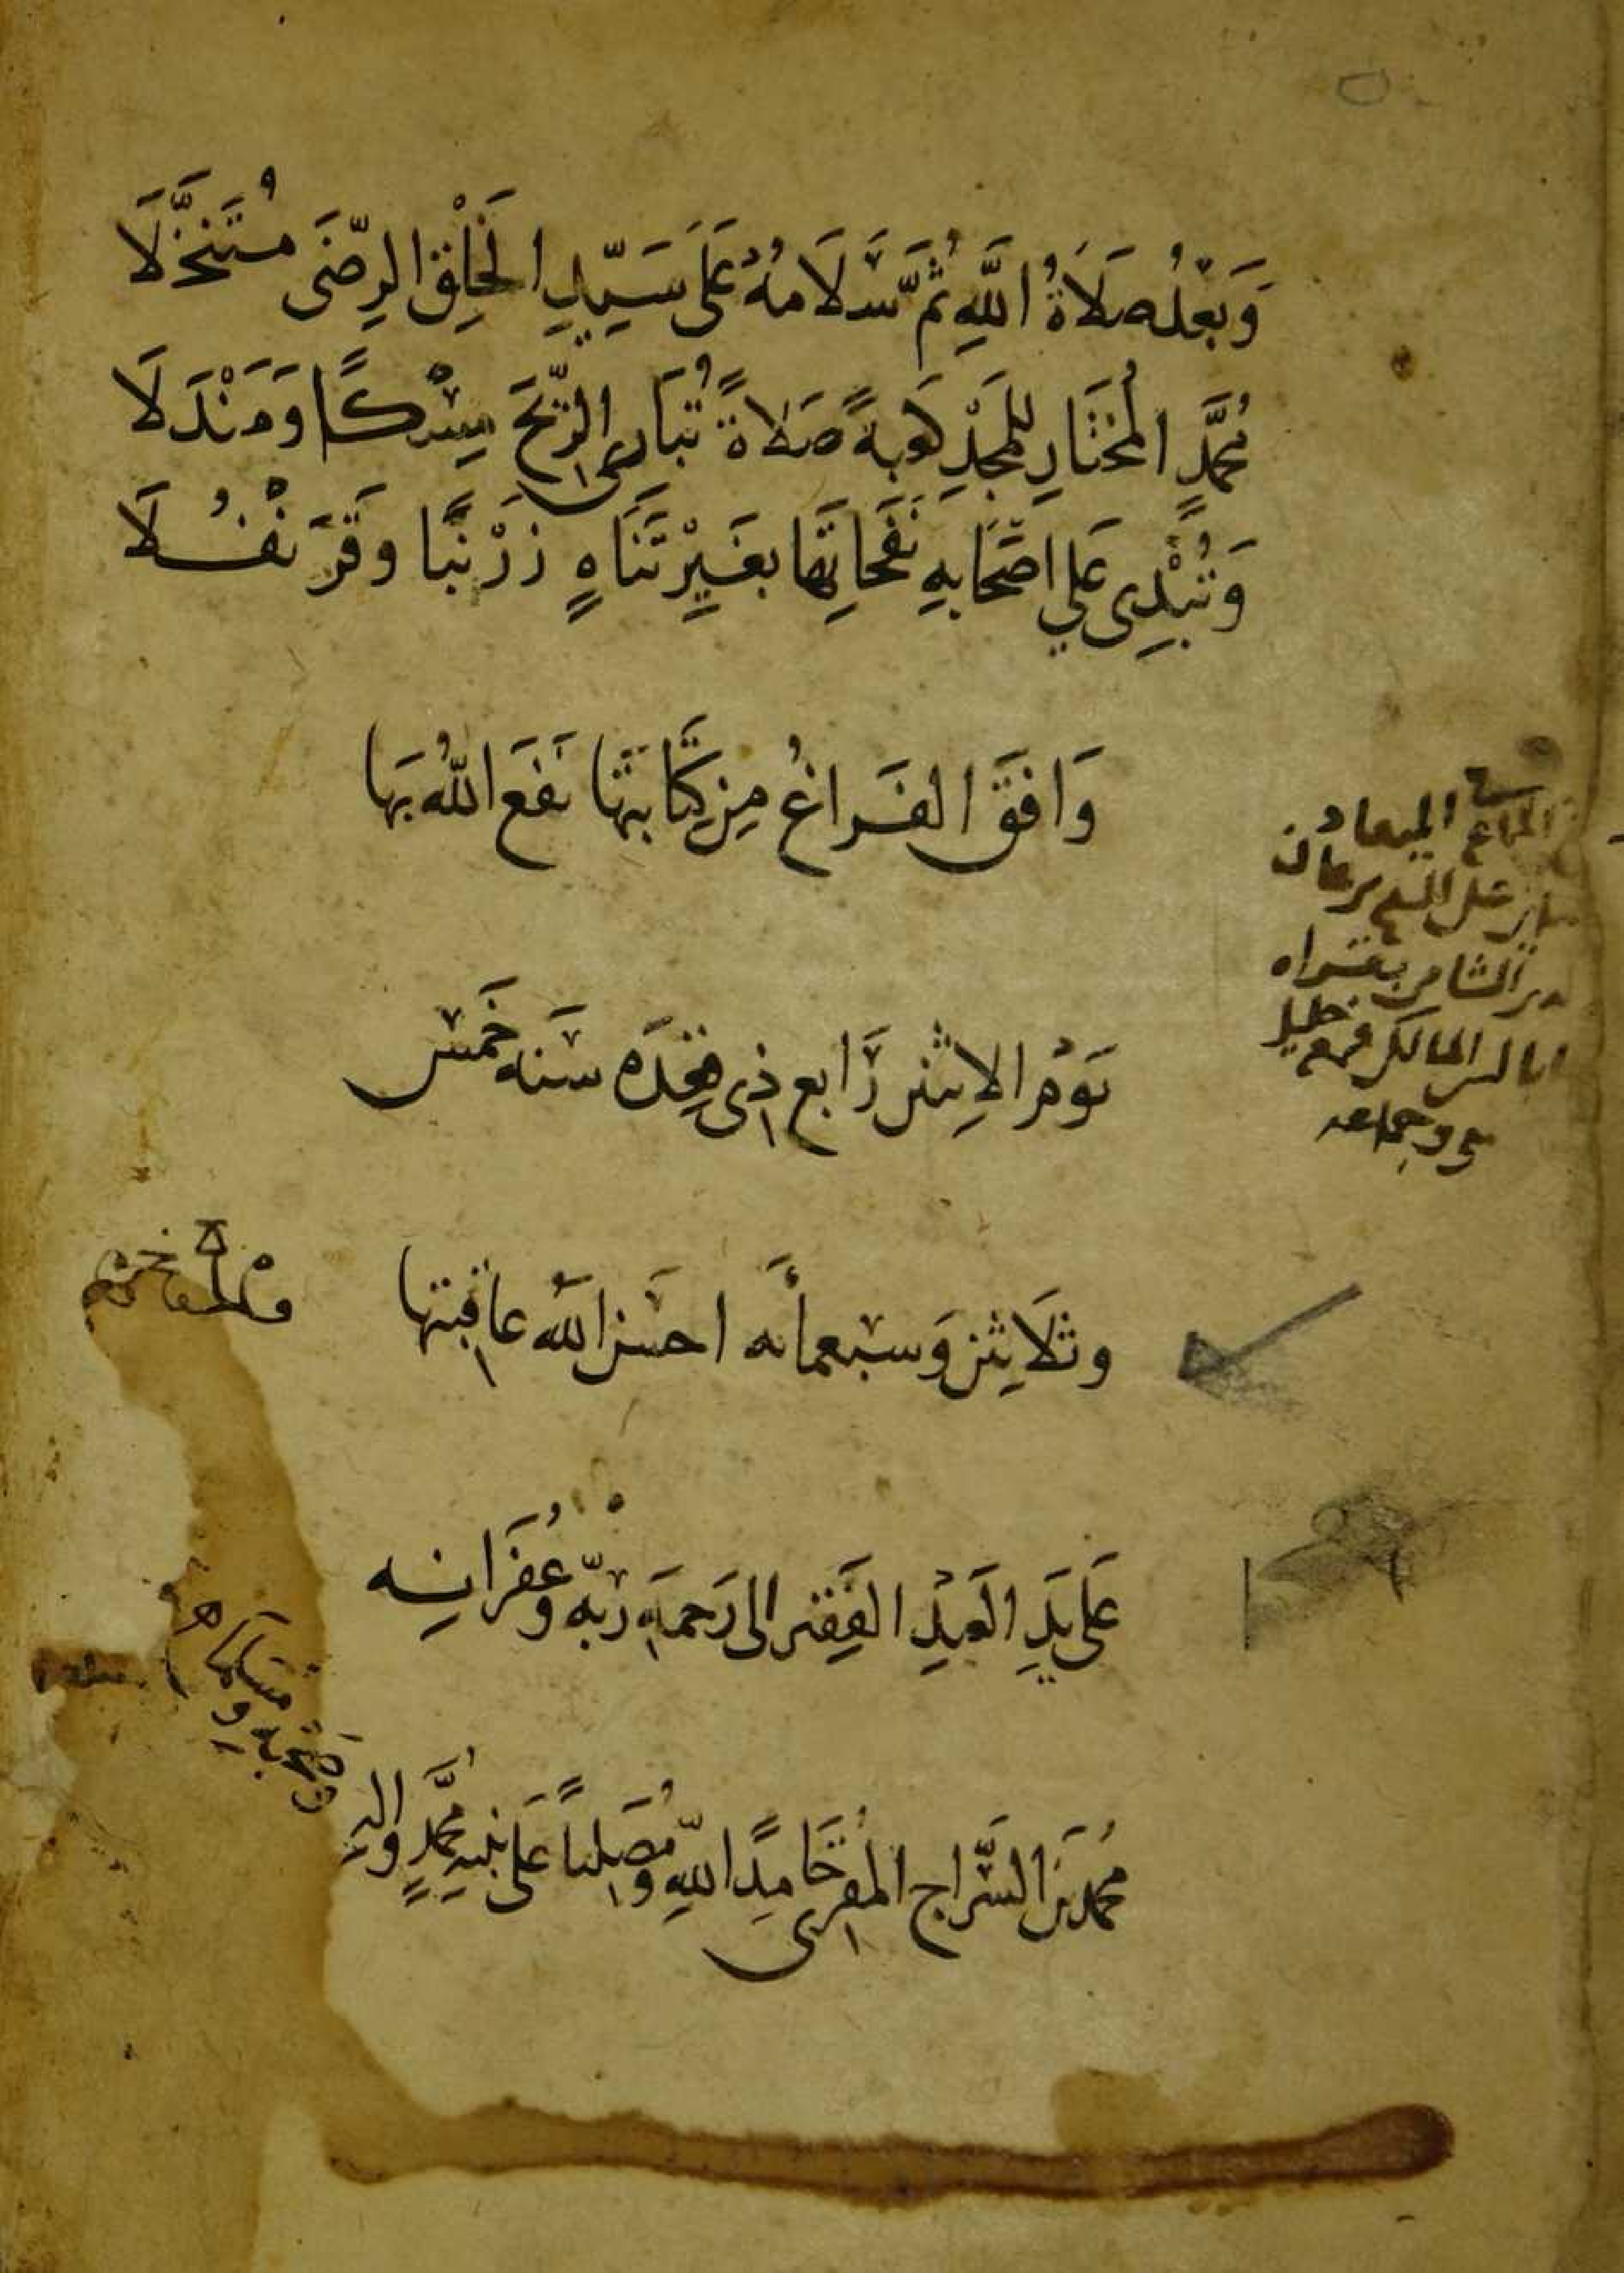 وَبَعْدُ صَلَاةُ اللَّهِ ثُمَّ سَلَامُهُ عَلَى سَيِّدِ الْخَلْقِ الرِّضَى مُتَنَخَّلَا
مُحَمَّدٍ الْمُخْتَارِ لِلْمَجْدِ كَعْبَةً صَلَاةً تُبَارِى الرِّيحَ مِسْكًا وَمَنْدَلَا
وَتُبْدِى عَلَى اصْحَابِهِ نَفَحَاتِهَا بِغَيْرِ تَنَاهٍ زَرْنَبًا وَقَرَنْفُلَا
وَافَقَ الفَرَاغُ مِن كِتَابَتِهَا نَفَعَ اللَّهُ بِهَا
يَوْمَ الاِثنين رَابع ذى قعِدَه سَنَه خَمْس
وثلَاثين وَسبعمائه احسَن اللَّه عاقبتها
عَلَى يَدِ العَبْدِ الفَقِير الى رَحمَةِ رَبّه وغُفرَانِه
مُحمَّد بن السَّرَّاج المُقرى حَامِدًا للَّهِ وَمُصَلياً عَلى نَبيهِ مُحَمَّدٍ وَالهِ
وصَحْبِهِ وَمُسَلِّمًا
بلغ
المیعاد
بقراه
المالكى
خليل
وجماعه